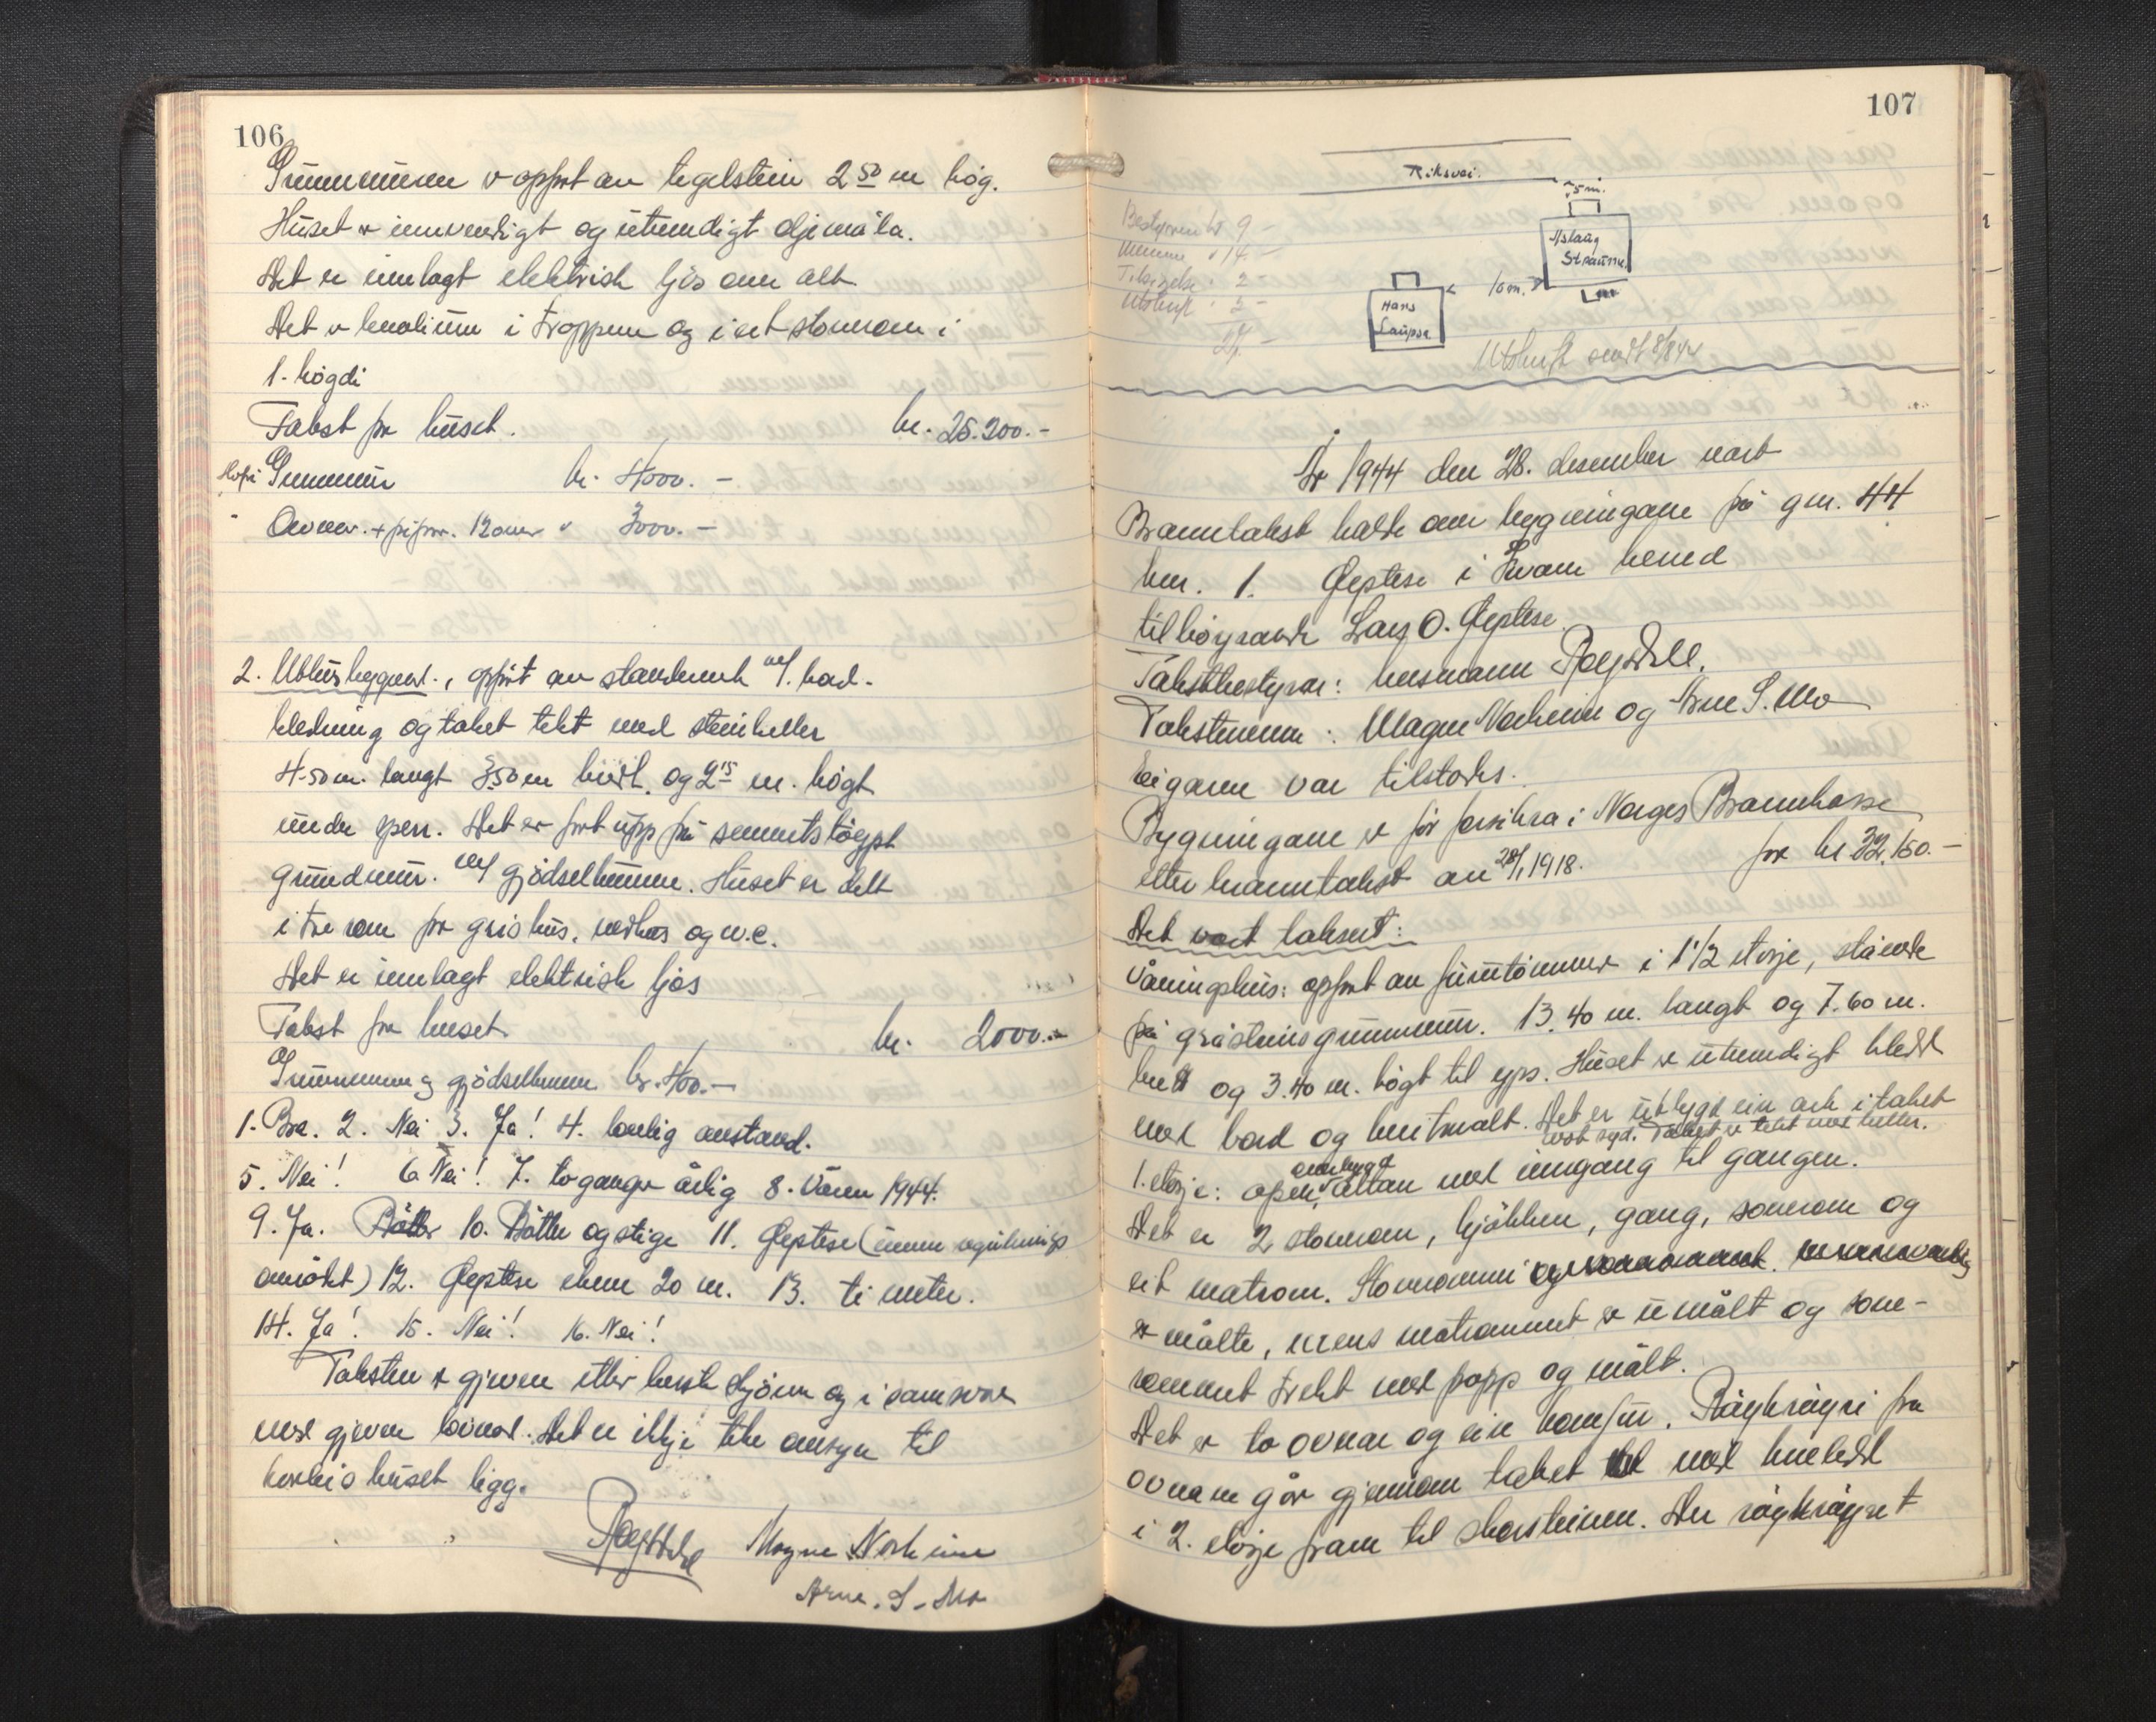 106
Grunnmuren er oppført av tegelstein 2 50 m høg.
Huset er innvendigt og utvendigt oljemåla.
Det er innlagt elektrisk ljos over alt
Det er linolium i troppene og i eit stoverom i
1. högdi
Takst for huset. kr. 25.200.-
Grunnmur kr. 4000.-
Ovner + pipor. 12 omr " 3000.-
2. Uthusbygnad., oppført av standverk m/. bord-
kledning og taket tekt med steinheller
4.50 m. langt 3.50 m breidt. og 2 15 m. högt
under sperr. Det er fört upp på sementstöypt
grundmur. m/ gjödselkummen. Huset er delt
i tre rom for grishus, vedhus og w.c.
Det er innlagt elektrisk ljos
Takst for huset. kr. 2000.-
Grunnmur og gjödselkummen kr. 400.-
1. Bra. 2. Nei 3. Ja! 4. lovlig avstand.
5. Nei! 6. Nei! 7. to ganger årlig 8. Våren 1944.
9. Ja. 10. Bötter og stige 11. Öystese (innen regulerings
området) 12. Öystese elven 20 m. 13. ti meter.
14. Ja! 15. Nei! 16. Nei!
Taksten er gjeven etter beste skjönn og i samsvar
med gjeven lovnad. Det er ikkje teke omsyn til
korleis huset ligg.
Magne Norheim
Arne. S. Mo
107
Riksvei.
5 m.
Aslaug
Straume
10 m.
Hans
Laupsa
Bestyrer kr 9 -
Menn " 14. -
Tilsigelse " 2 -
Utskrift " 2 -
27. -
Utskrift sendt 8/8 44
År 1944 den 28. desember vart
Branntakst halde over bygningane på gnr. 44
bnr. 1. Öystese i Kvam herad
tilhöyrande Lars O. Öystese.
Takstbestyrar: lensmann
Takstmenn: Magne Norheim og Arne S. Mo
Eigaren var tilstades.
Bygningane er för forsikra i Norges Brannkasse
etter branntakst av 28/1 1918. for kr. 32.150.-
Det vart taksert:
Våningshus: oppfört av furutömmer i 1 1/2 etasje, stående
på gråsteinsgrunnmur. 13.40 m. langt og 7.60 m.
breitt og 3.40 m. högt til gips. Huset er utvendigt kledd
med bord og kvitmalt. Det er utbygt ein ark i taket
mot syd. Taket er tekt med heller.
1. etasje: open, overbygd altan med inngang til gangen.
Det er 2 stoverom, kjökken, gang, soverom og
eit matrom. Stoverommi
er målte, mens matrommet er umålt og sove-
rommet trekt med papp og målt.
Det er to ovnar og ein komfur. Röykröyri fra
ovnane går gjennom taket med
i 2. etasje fram til skorsteinen. Der röykröyret